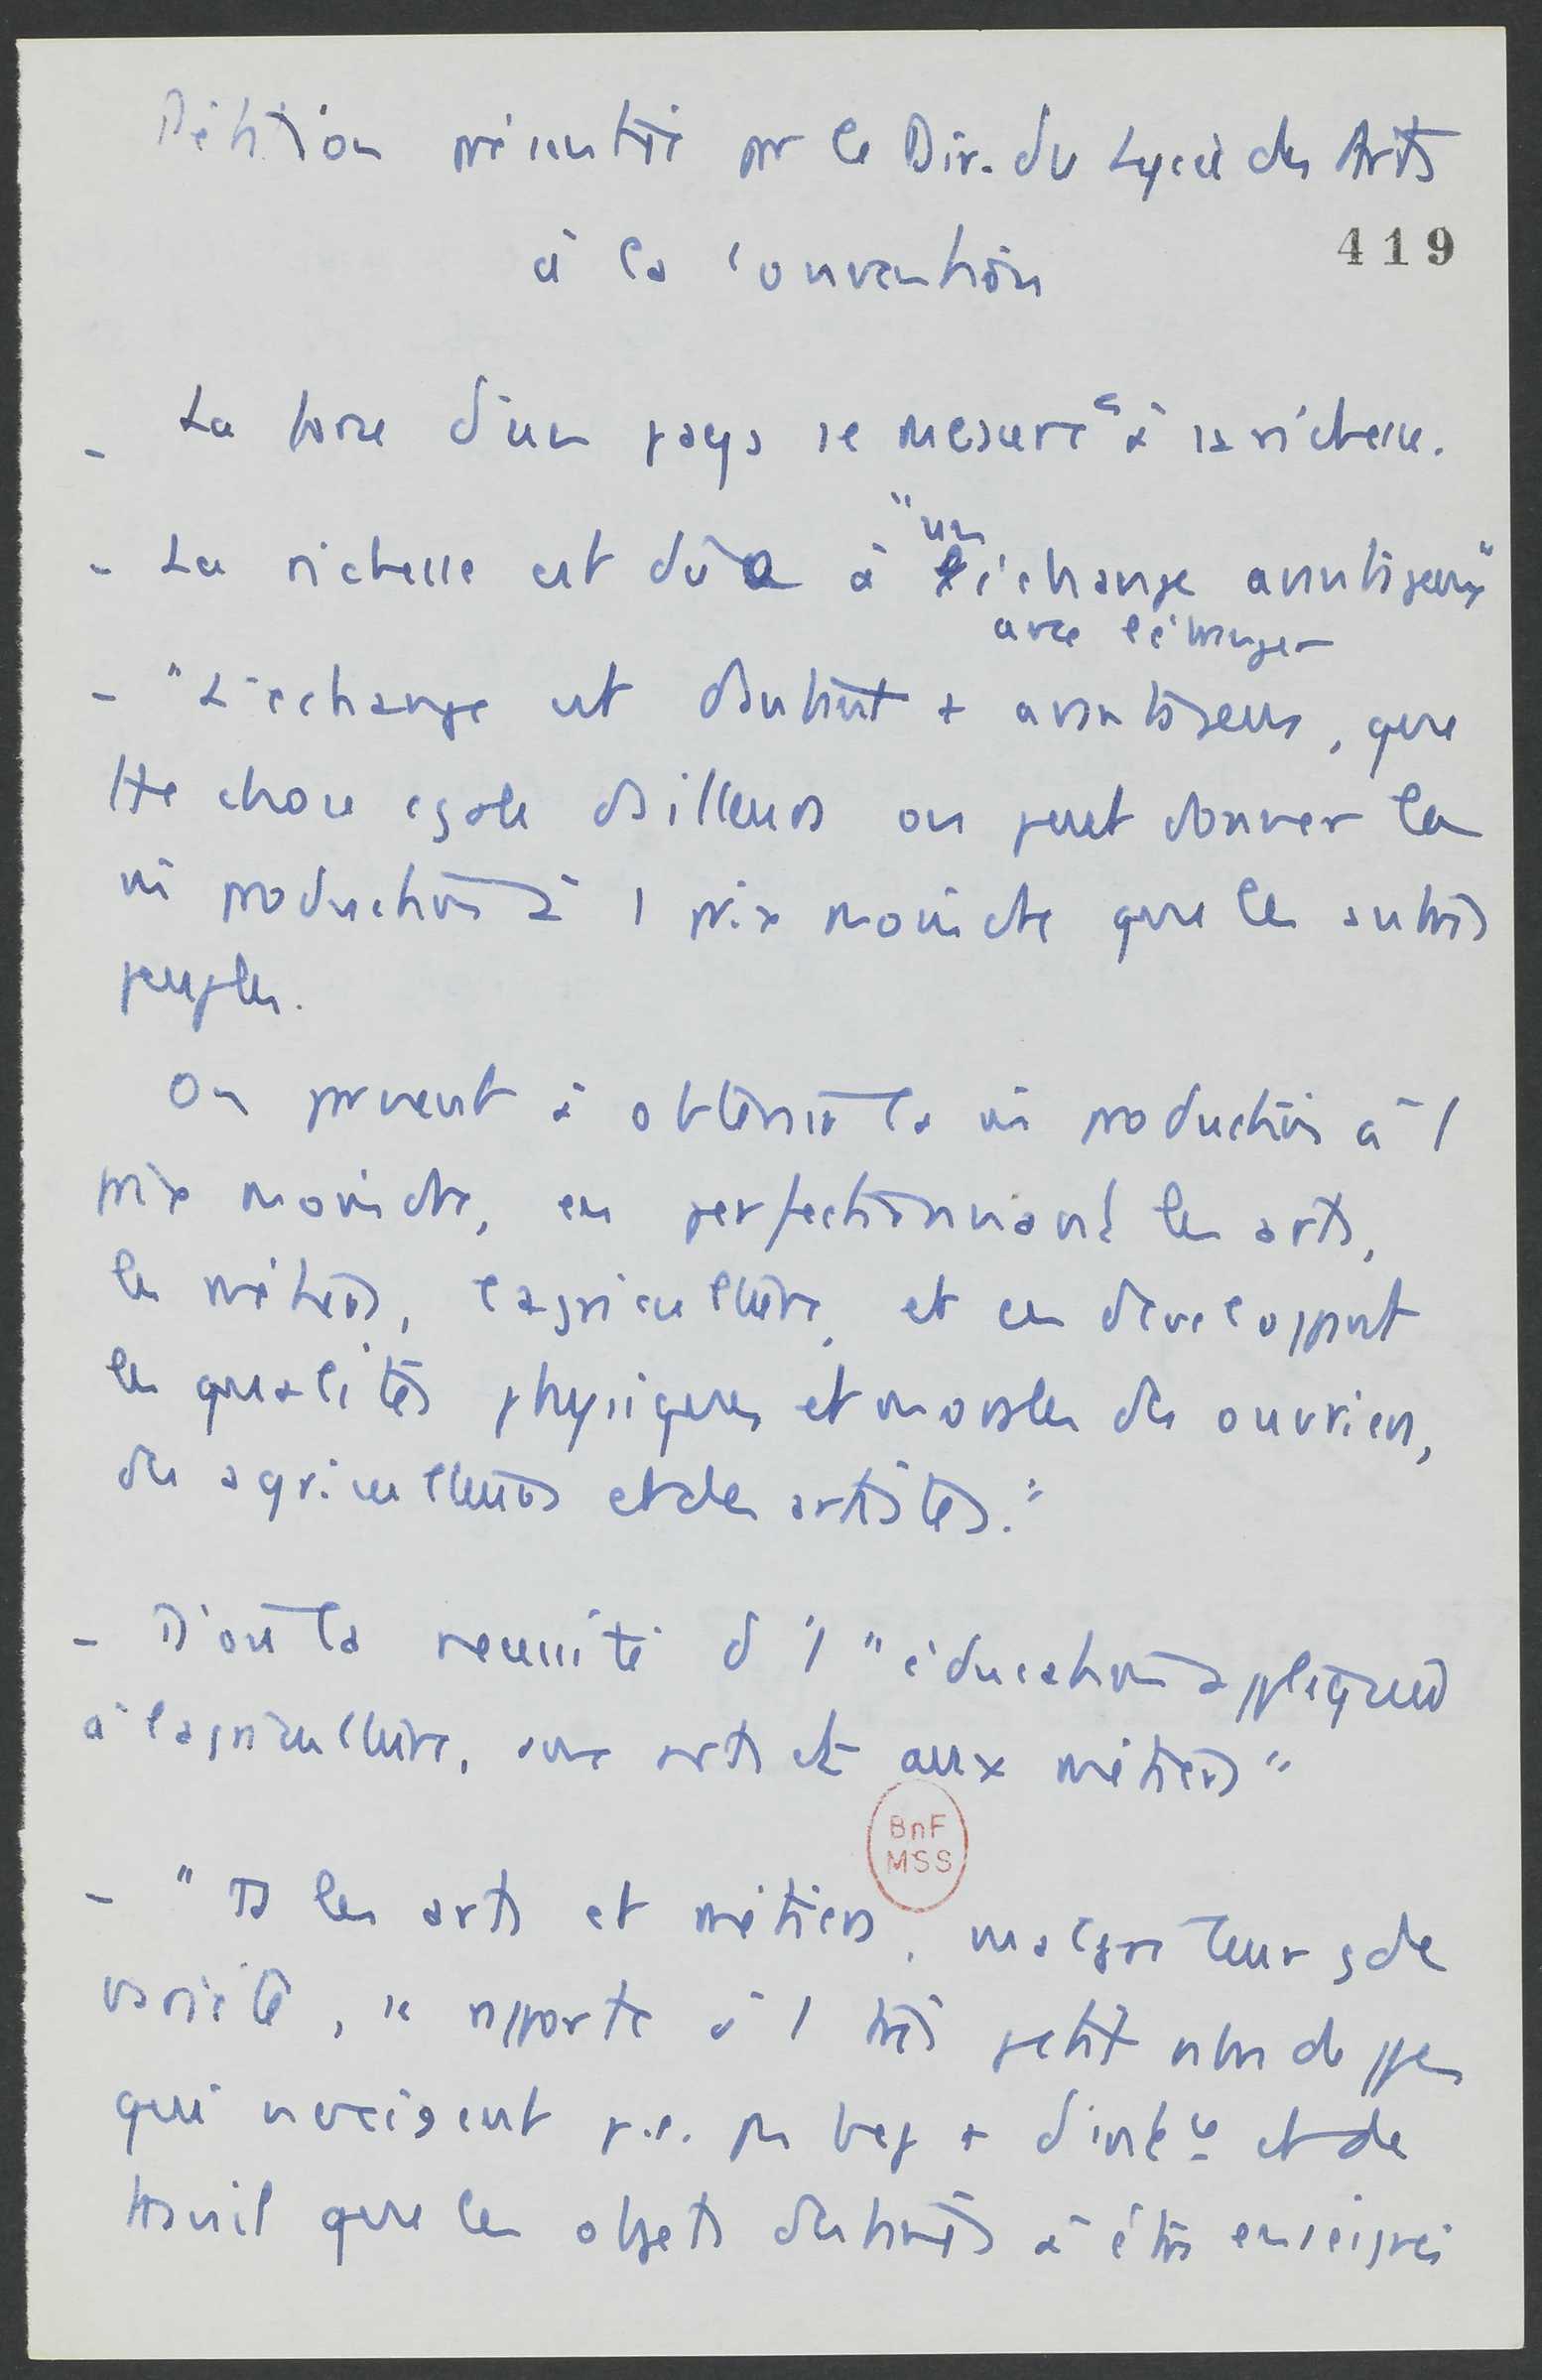 Pétition présentée pr le Dir. du Lycée des Arts
à la Convention
419
- La force d'un pays se mesure à sa richesse.
- La richesse est dûe à "un échange avantageux"
avec l'étranger
- "L'échange est d'autant + avantageux, que
tte chose égale d'ailleurs on peut donner la
m̂ production à 1 prix moindre que les autres
peuples.
On parvient à obtenir la m̂ production à 1
prix moindre, en perfectionnant les arts,
les métiers, l'agriculture, et en developpant
les qualités physiques et morales des ouvriers,
des agriculteurs et des artistes."
- D'où la nécessité d'1 "éducation appliquée
à l'agriculture, aux arts et aux métiers"
BnF
MSS
- "Ts les arts et métiers, malgré leur gde
variété, se rapporte à 1 très petit nbre de ppes
qui n'exigent p.ê. pas bcp + d'int et de
travail que les objets destinés à être enseignés